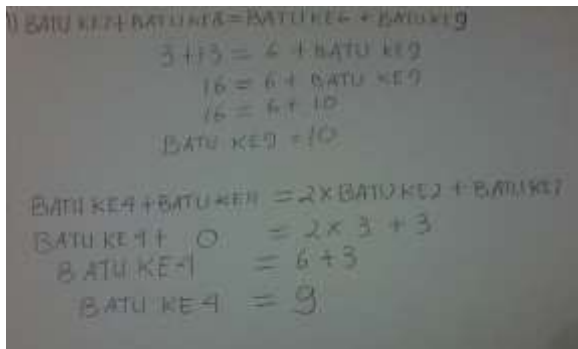 1) BATU KE7+BATU KE8=BATU KE6 + BATU KE9
3 +13 = 6 + BATU KE9
16 = 6 + BATU KE9
16 = 6 + 10
BATU KE9 = 10
BATU KE4 +BATU KE11 = 2×BATU KE2 + BATU KE7
BATU KE4 + 0 = 2× 3 + 3
BATU KE4 = 6+3
BATU KE4 = 9